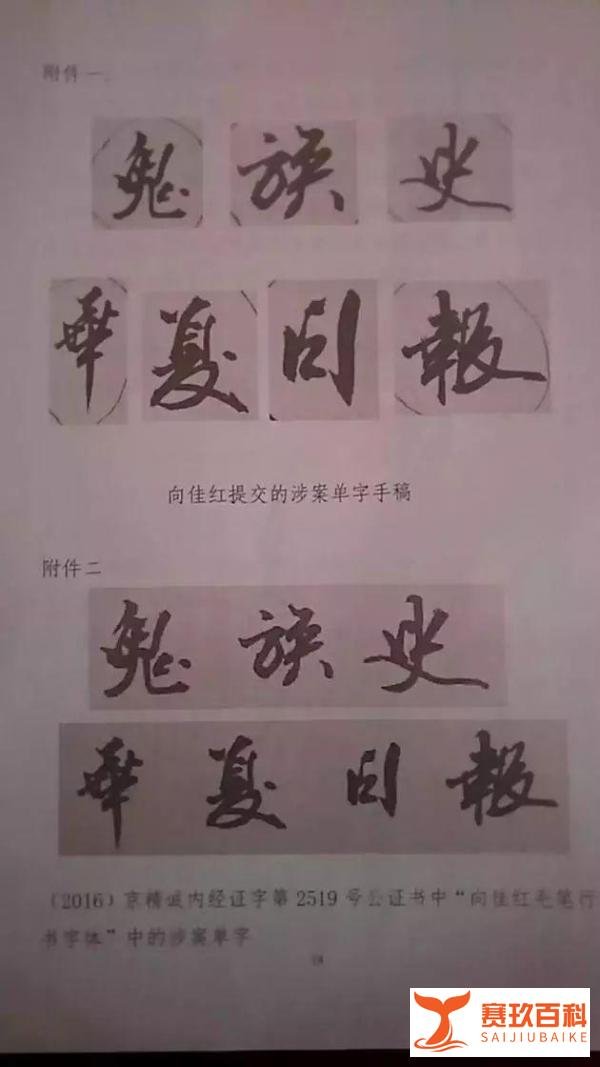 附件一
鬼族史
華夏日報
向佳红提交的涉案单字手稿
附件二
鬼族史
華夏日報
（2016）京精诚内经证字第2519号公证书中“向佳红毛笔行
书字体”中的涉案单字
赛玖百科
SAIJIUBAIKE